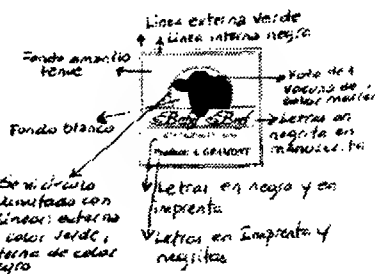 Linea externa verde
Linea interna negra
Fondo amarillo
tenue
Foto de 1
vacuno de
color
Fondo blanco
Letras en
negrita en
manuscrita
Semicirculo
limitado con
lineas: externa
color verde,
interna de color
negro
Producto: GRANPORT
Letras en negro y en
imprenta
Letras en Imprenta y
negritas